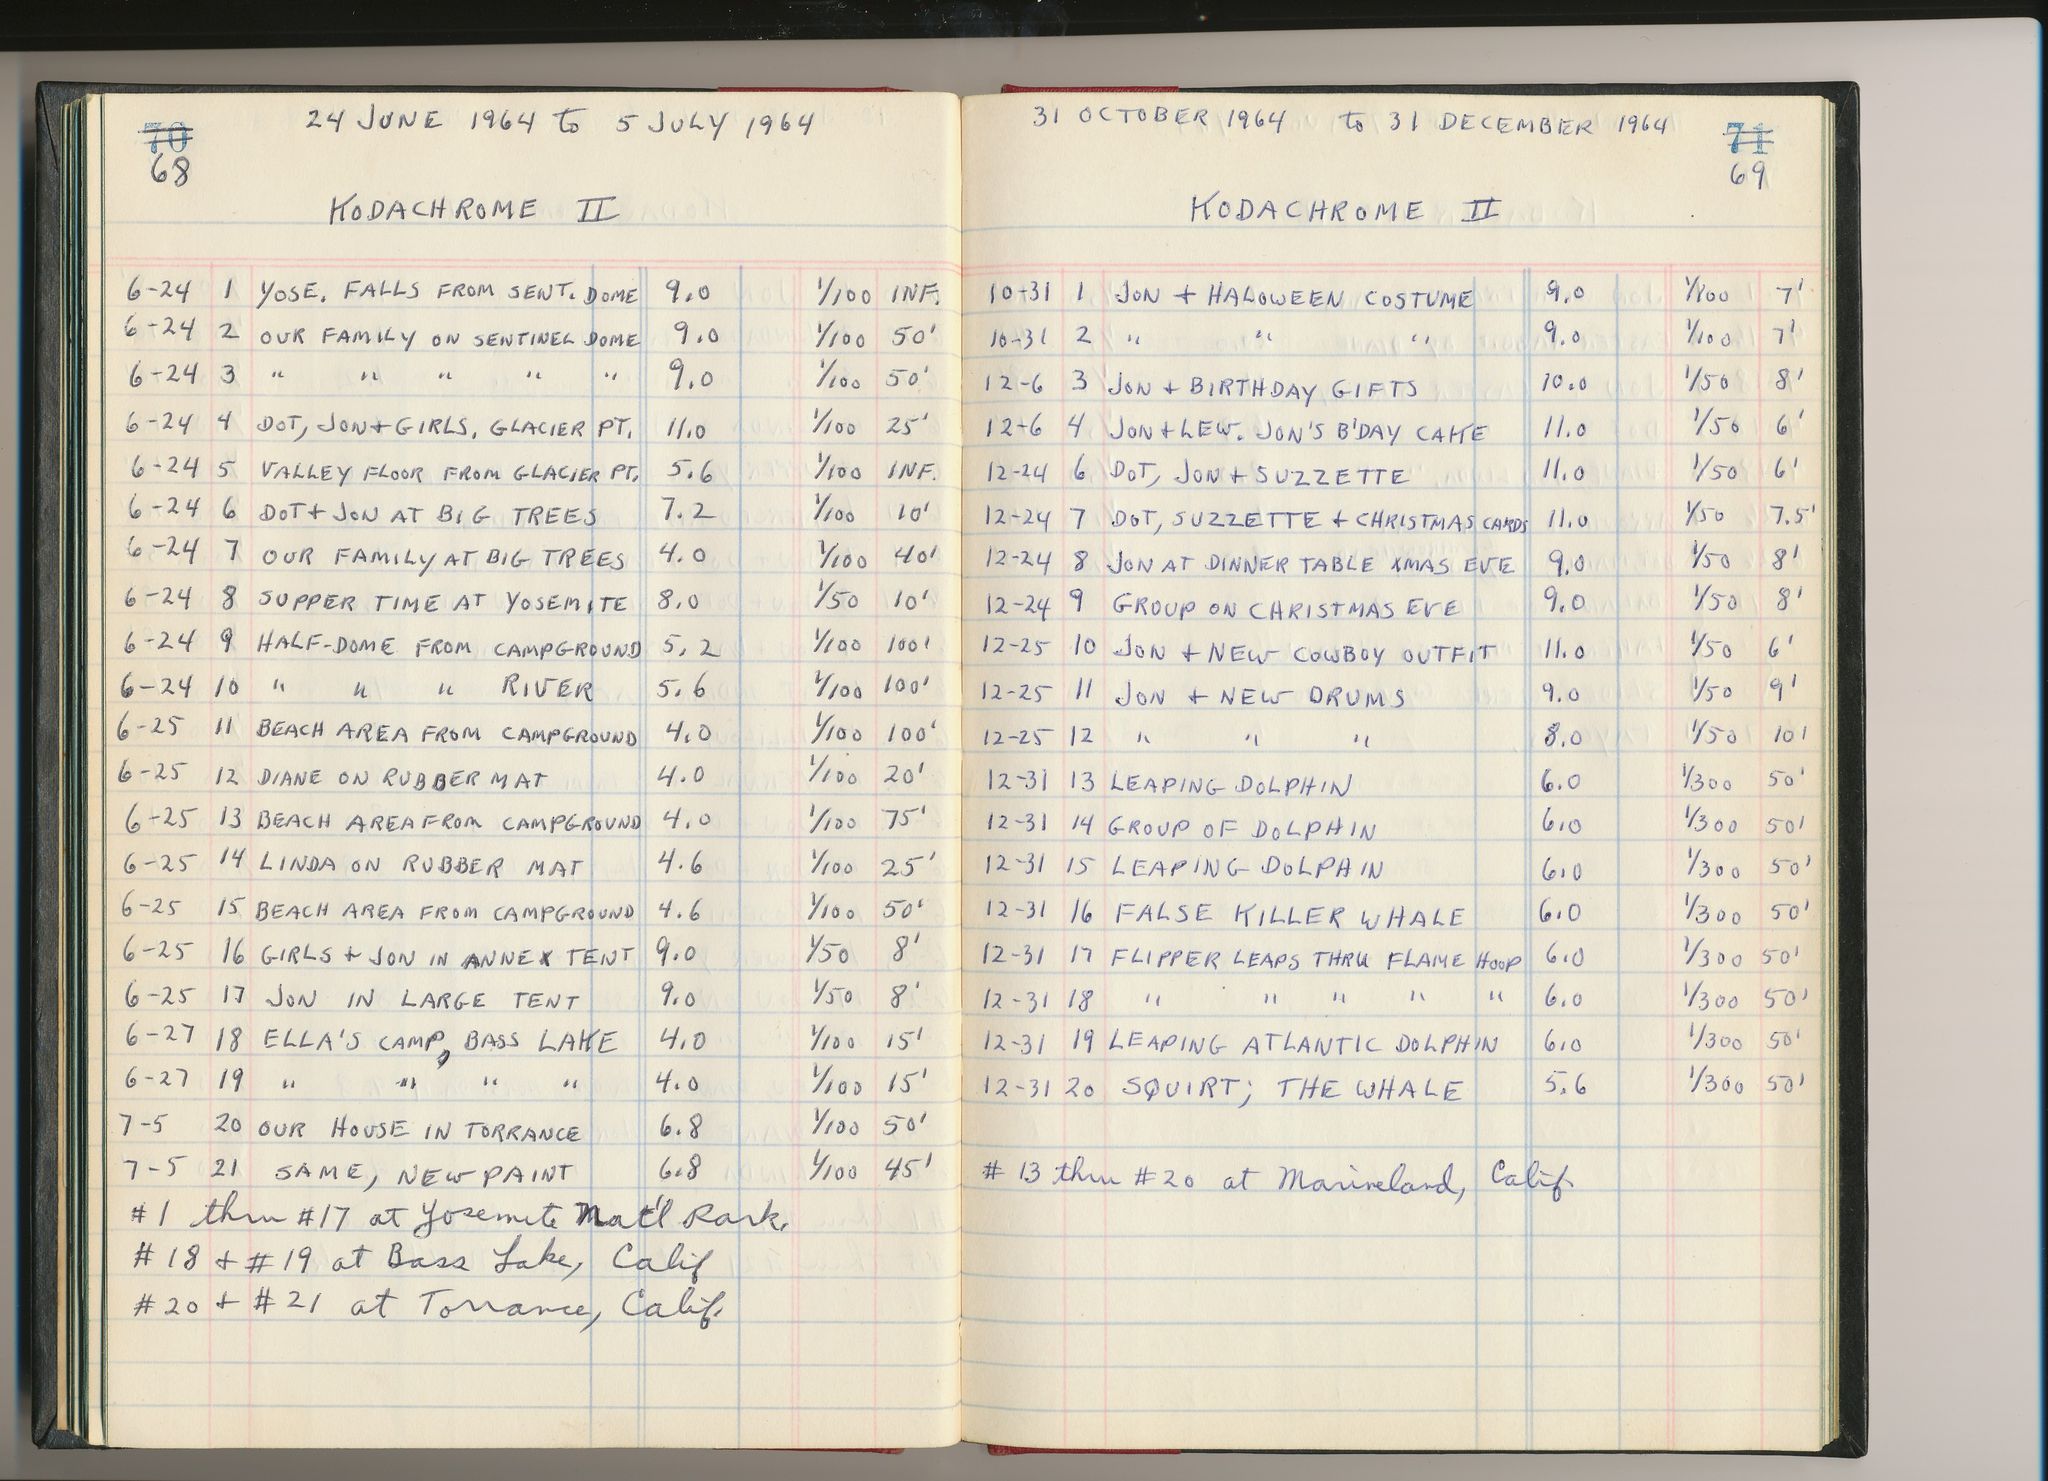 24 JUNE 1964 to 5 JULY 1964
70
68
KODACHROME II
6-24 1 YOSE. FALLS FROM SENT. DOME 9.0 1/100 INF.
6-24 2 OUR FAMILY ON SENTINEL DOME 9.0 1/100 50'
6-24 3 " " " " " 9.0 1/100 50'
6-24 4 DOT, JON + GIRLS, GLACIER PT. 11.0 1/100 25'
6-24 5 VALLEY FLOOR FROM GLACIER PT. 5.6 1/100 INF.
6-24 6 DOT + JON AT BIG TREES 7.2 1/100 10'
6-24 7 OUR FAMILY AT BIG TREES 4.0 1/100 40'
6-24 8 SUPPER TIME AT YOSEMITE 8.0 1/50 10'
6-24 9 HALF-DOME FROM CAMPGROUND 5.2 1/100 100'
6-24 10 " " " RIVER 5.6 1/100 100'
6-25 11 BEACH AREA FROM CAMPGROUND 4.0 1/100 100'
6-25 12 DIANE ON RUBBER MAT 4.0 1/100 20'
6-25 13 BEACH AREA FROM CAMPGROUND 4.0 1/100 75'
6-25 14 LINDA ON RUBBER MAT 4.6 1/100 25'
6-25 15 BEACH AREA FROM CAMPGROUND 4.6 1/100 50'
6-25 16 GIRLS + JON IN ANNEX TENT 9.0 1/50 8'
6-25 17 JON IN LARGE TENT 9.0 1/50 8'
6-27 18 ELLA'S CAMP, BASS LAKE 4.0 1/100 15'
6-27 19 " " " " 4.0 1/100 15'
7-5 20 OUR HOUSE IN TORRANCE 6.8 1/100 50'
7-5 21 SAME, NEW PAINT 6.8 1/100 45'
#1 thru #17 at Yosemite Nat'l Park.
#18 + #19 at Bass Lake, Calif
#20 + #21 at Torrance, Calif.
31 OCTOBER 1964 to 31 DECEMBER 1964
71
69
KODACHROME II
10-31 1 JON + HALOWEEN COSTUME 9.0 1/100 7'
10-31 2 " " " 9.0 1/100 7'
12-6 3 JON + BIRTHDAY GIFTS 10.0 1/50 8'
12-6 4 JON + LEW. JON'S B'DAY CAKE 11.0 1/50 6'
12-24 6 DOT, JON + SUZZETTE 11.0 1/50 6'
12-24 7 DOT, SUZZETTE + CHRISTMAS CARDS 11.0 1/50 7.5'
12-24 8 JON AT DINNER TABLE XMAS EVE 9.0 1/50 8'
12-24 9 GROUP ON CHRISTMAS EVE 9.0 1/50 8'
12-25 10 JON + NEW COWBOY OUTFIT 11.0 1/50 6'
12-25 11 JON + NEW DRUMS 9.0 1/50 9'
12-25 12 " " " 8.0 1/50 10'
12-31 13 LEAPING DOLPHIN 6.0 1/300 50'
12-31 14 GROUP OF DOLPHIN 6.0 1/300 50'
12-31 15 LEAPING DOLPHIN 6.0 1/300 50'
12-31 16 FALSE KILLER WHALE 6.0 1/300 50'
12-31 17 FLIPPER LEAPS THRU FLAME HOOP 6.0 1/300 50'
12-31 18 " " " " " 6.0 1/300 50'
12-31 19 LEAPING ATLANTIC DOLPHIN 6.0 1/300 50'
12-31 20 SQUIRT; THE WHALE 5.6 1/300 50'
#13 thru #20 at Marineland, Calif.